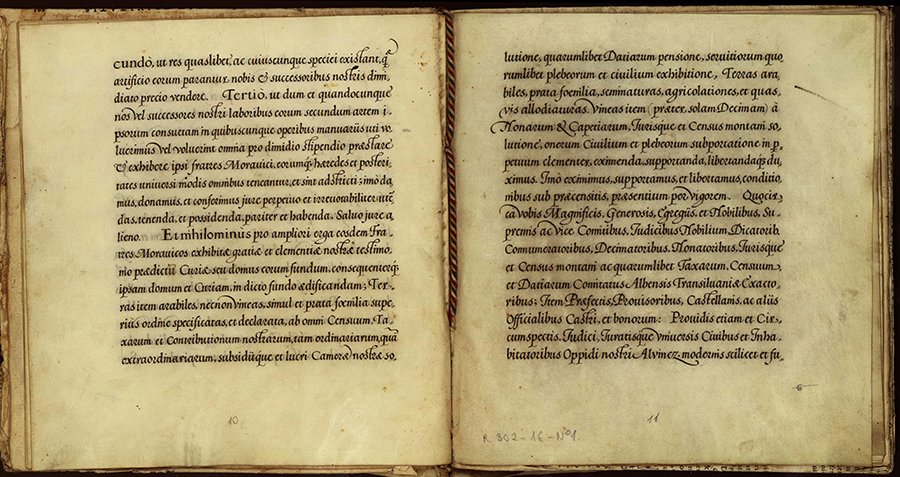 cundo, ut res quaslibet, ac cuiuscunque speciei existant, q̃
artificio eorum parantur, nobis & successoribus nostris dimi,
diato precio vendere. Tertiò, ut dum et quandocunque
nos vel successores nostri laboribus eorum secundum artem i,
psorum consuetam in quibuscunque operibus manuariis uti vo,
luerimus vel voluerint omnia pro dimidio stipendio præstare
& exhibere ipsi fratres Morauici, eorumq; hæredes et posteri,
tates universi modis omnibus teneantur, et sint adstricti; imò da,
mus, donamus, et conferimus jure perpetuo et irreuocabiliter
das, tenenda, et possidenda, pariter et habenda, Saluo jure a,
lieno. Et nihilominus pro ampliori erga eosdem Fra,
tres Morauicos exhibitæ gratiæ et clementiæ nostræ testimo,
nio prædictũ Curiæ seu domus eorum fundum, consequenterq;
ipsam domum et Curiam, in dicto fundo ædificandam; Ter,
ras item arabiles, necnon vineas, simul et prata fœnilia supe,
rius ordine specificatas, et declarata, ab omni Censuum, Ta,
xarum et Contributionum nostrarum, tam ordinariarum, quã
extraordinariarum, subsidiique et lucri Cameræ nostræ so,
10
lutione, quarumlibet Datiarum pensione, seruitiorum quo
rumlibet plebeorum et ciuilium exhibitione, Terras ara,
biles, prata fœnilia, seminaturas, agricolationes, et quas,
vis allodiaturas. Vineas item (præter solam Decimam) à
Nonarum & Capetiarum, Iurisque et Census montani so,
lutione, onerum Ciuilium et plebeorum subportatione in p̱
petuum clementer, eximenda, supportanda, libertandaq; du,
ximus. Imò eximimus, supportamus, et libertamus, conditio,
nibus sub præcensitis, præsentium per vigorem. Quocir,
ca vobis Magnificis, Generosis, Egregiis, et Nobilibus, Su,
premis ac Vice Comitibus, Iudicibus Nobilium, Dicatorib.
Connumeratoribus, Decimatoribus, Nonatoribus, Iurisque
et Census montani ac quarumlibet Taxarum, Censuum,
et Datiarum Comitatus Albensis Transiluaniæ Exacto,
ribus; Item Præfectis, Prouisoribus, Castellanis, ac aliis
Officialibus Castri, et bonorum: Prouidis etiam et Cir,
cumspectis, Iudici, Iuratisque vniuersis Ciuibus et Inha,
bitatoribus Oppidi nostri Alvincz, modernis scilicet et fu,
11
R 302-16-Nº1.